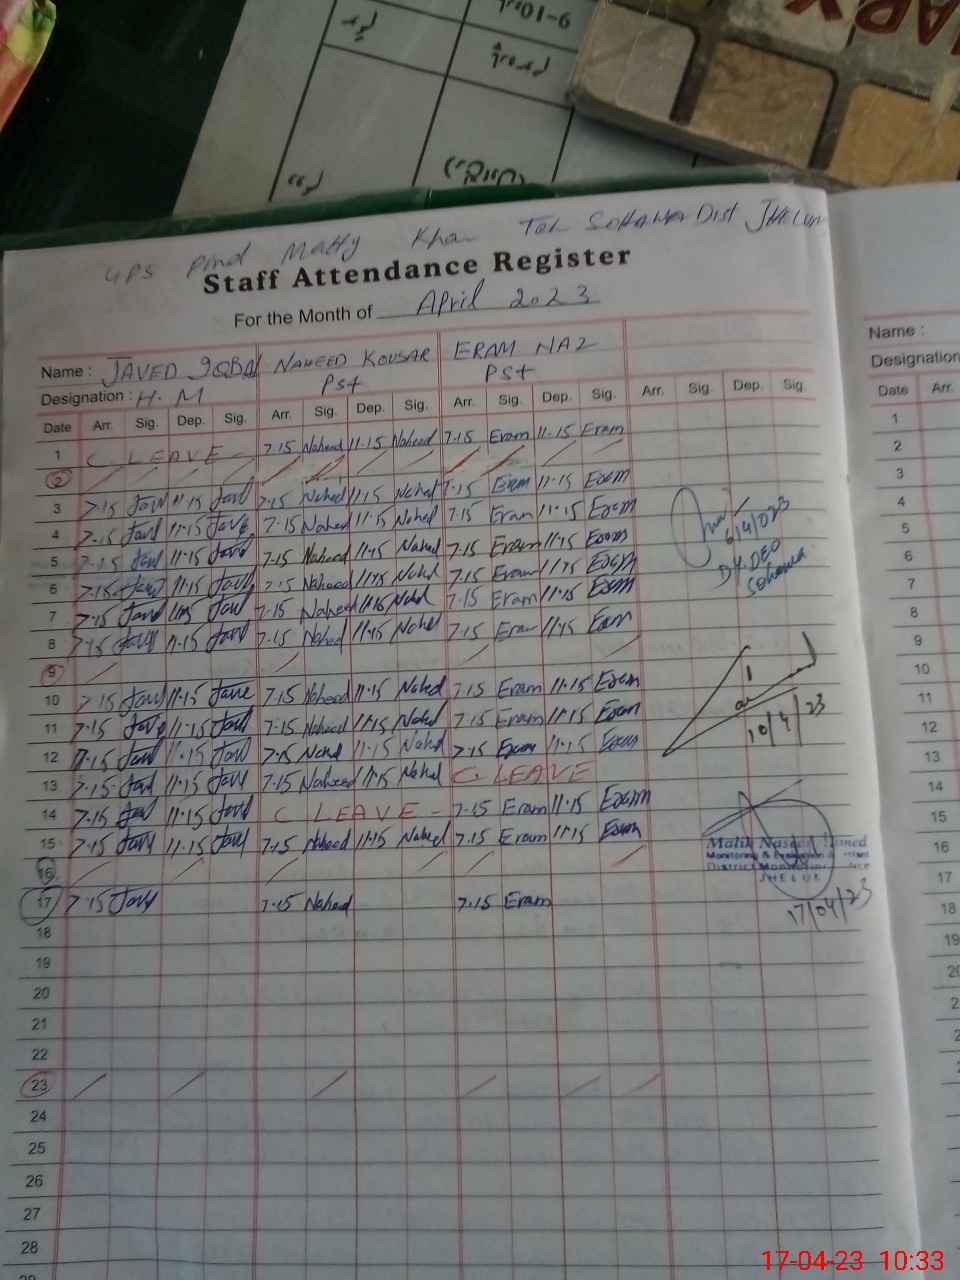 GPS Pind Matty Khan Teh Sohawa Dist JHELUM
Staff Attendance Register
For the Month of April 2023
Name : JAVED IQBAL NAHEED KOUSAR ERAM NAZ
Designation : H.M PST PST
Date Arr. Sig. Dep. Sig. Arr. Sig. Dep. Sig. Arr. Sig. Dep. Sig. Arr. Sig. Dep. Sig.
1 C. LEAVE 7-15 Naheed 11-15 Naheed 7-15 Eram 11-15 Eram
2
3 7-15 Javd 11-15 Javd 7-15 Naheed 11-15 Naheed 7-15 Eram 11-15 Eram
4 7-15 Javd 11-15 Javd 7-15 Naheed 11-15 Naheed 7-15 Eram 11-15 Eram
5 7-15 Javd 11-15 Javd 7-15 Naheed 11-15 Naheed 7-15 Eram 11-15 Eram
6 7-15 Javd 11-15 Javd 7-15 Naheed 11-15 Naheed 7-15 Eram 11-15 Eram
7 7-15 Javd 11-15 Javd 7-15 Naheed 11-15 Naheed 7-15 Eram 11-15 Eram
8 7-15 Javd 11-15 Javd 7-15 Naheed 11-15 Naheed 7-15 Eram 11-15 Eram
9
10 7-15 Javd 11-15 Javd 7-15 Naheed 11-15 Naheed 7-15 Eram 11-15 Eram
11 7-15 Javd 11-15 Javd 7-15 Naheed 11-15 Naheed 7-15 Eram 11-15 Eram
12 7-15 Javd 11-15 Javd 7-15 Naheed 11-15 Naheed 7-15 Eram 11-15 Eram
13 7-15 Javd 11-15 Javd 7-15 Naheed 11-15 Naheed C. LEAVE
14 7-15 Javd 11-15 Javd C LEAVE 7-15 Eram 11-15 Eram
15 7-15 Javd 11-15 Javd 7-15 Naheed 11-15 Naheed 7-15 Eram 11-15 Eram
16
17 7-15 Javd 7-15 Naheed 7-15 Eram
18
19
20
21
22
23
24
25
26
27
28
6/4/023
DY.DEO
Sohawa
10/4/23
Malik
Monitoring &
District Monitoring
JHELUM
17/04/23
Name :
Designation
Date Arr.
1
2
3
4
5
6
7
8
9
10
11
12
13
14
15
16
17
18
19
17-04-23 10:33